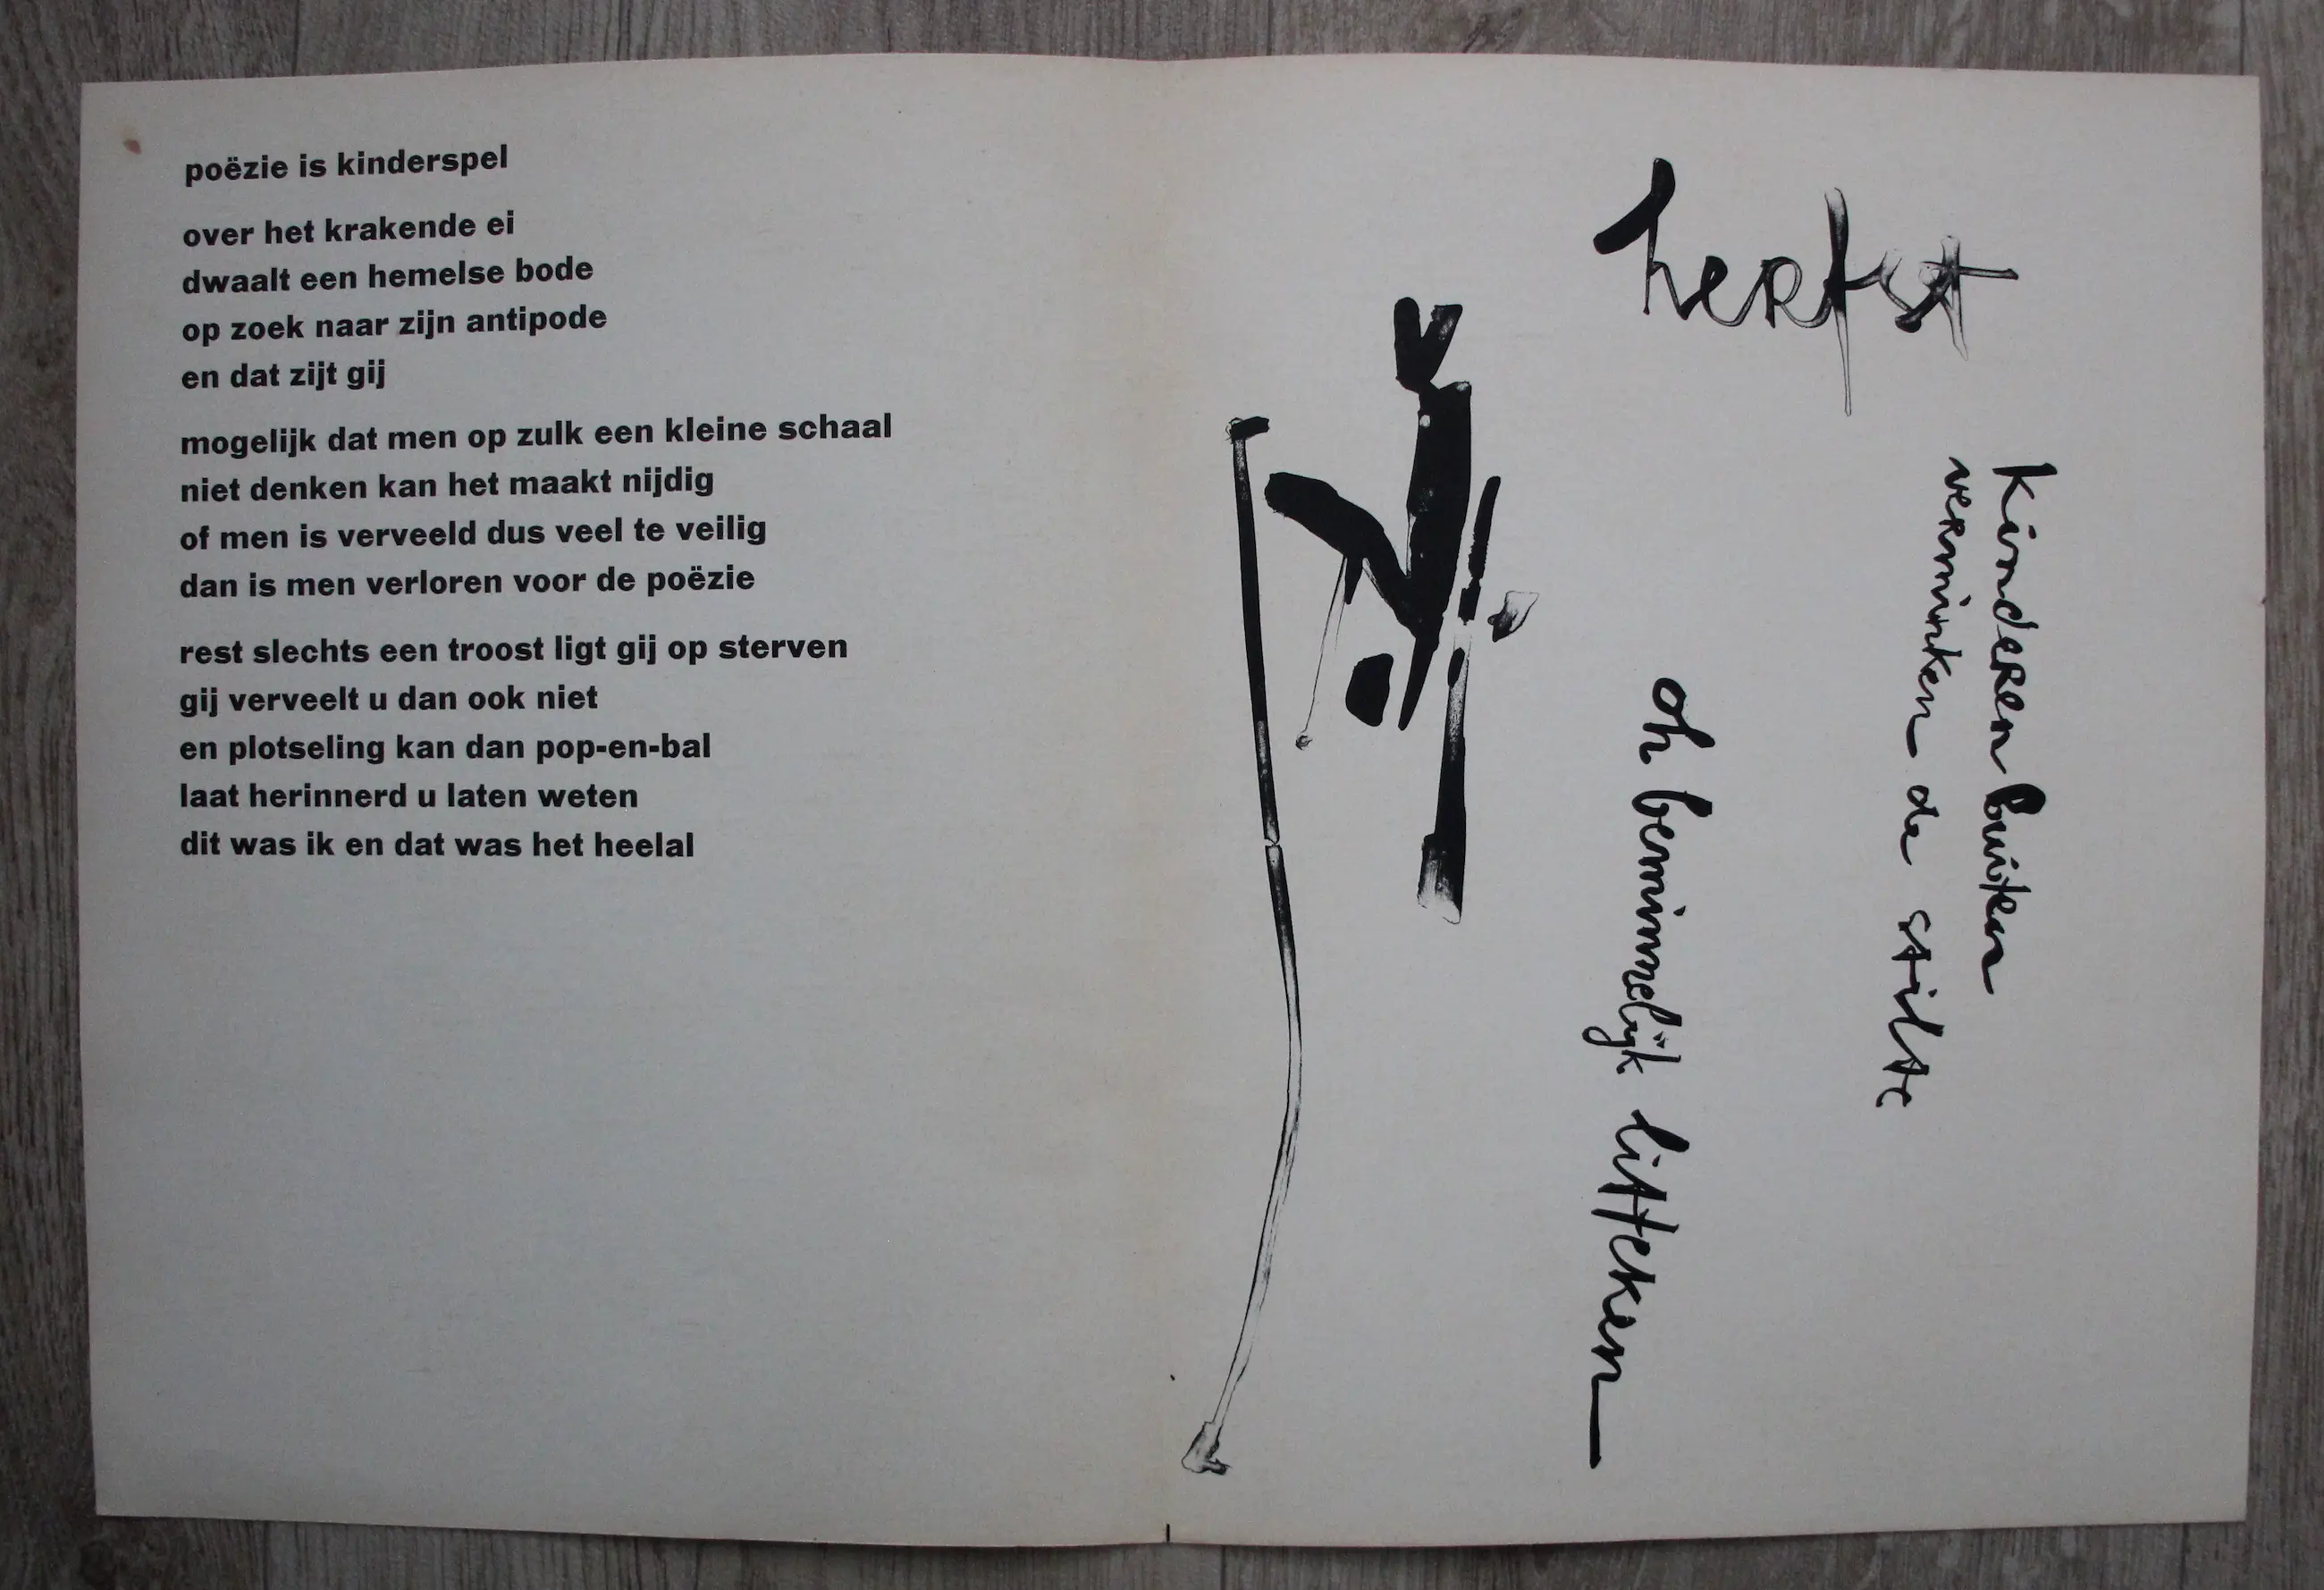 poëzie is kinderspel
over het krakende ei
dwaalt een hemelse bode
op zoek naar zijn antipode
en dat zijt gij
mogelijk dat men op zulk een kleine schaal
niet denken kan het maakt nijdig
of men is verveeld dus veel te veilig
dan is men verloren voor de poëzie
rest slechts een troost ligt gij op sterven
gij verveelt u dan ook niet
en plotseling kan dan pop-en-bal
laat herinnerd u laten weten
dit was ik en dat was het heelal
herfst
kinderen buiten
verminken de stilte
oh beminnelijk litteken